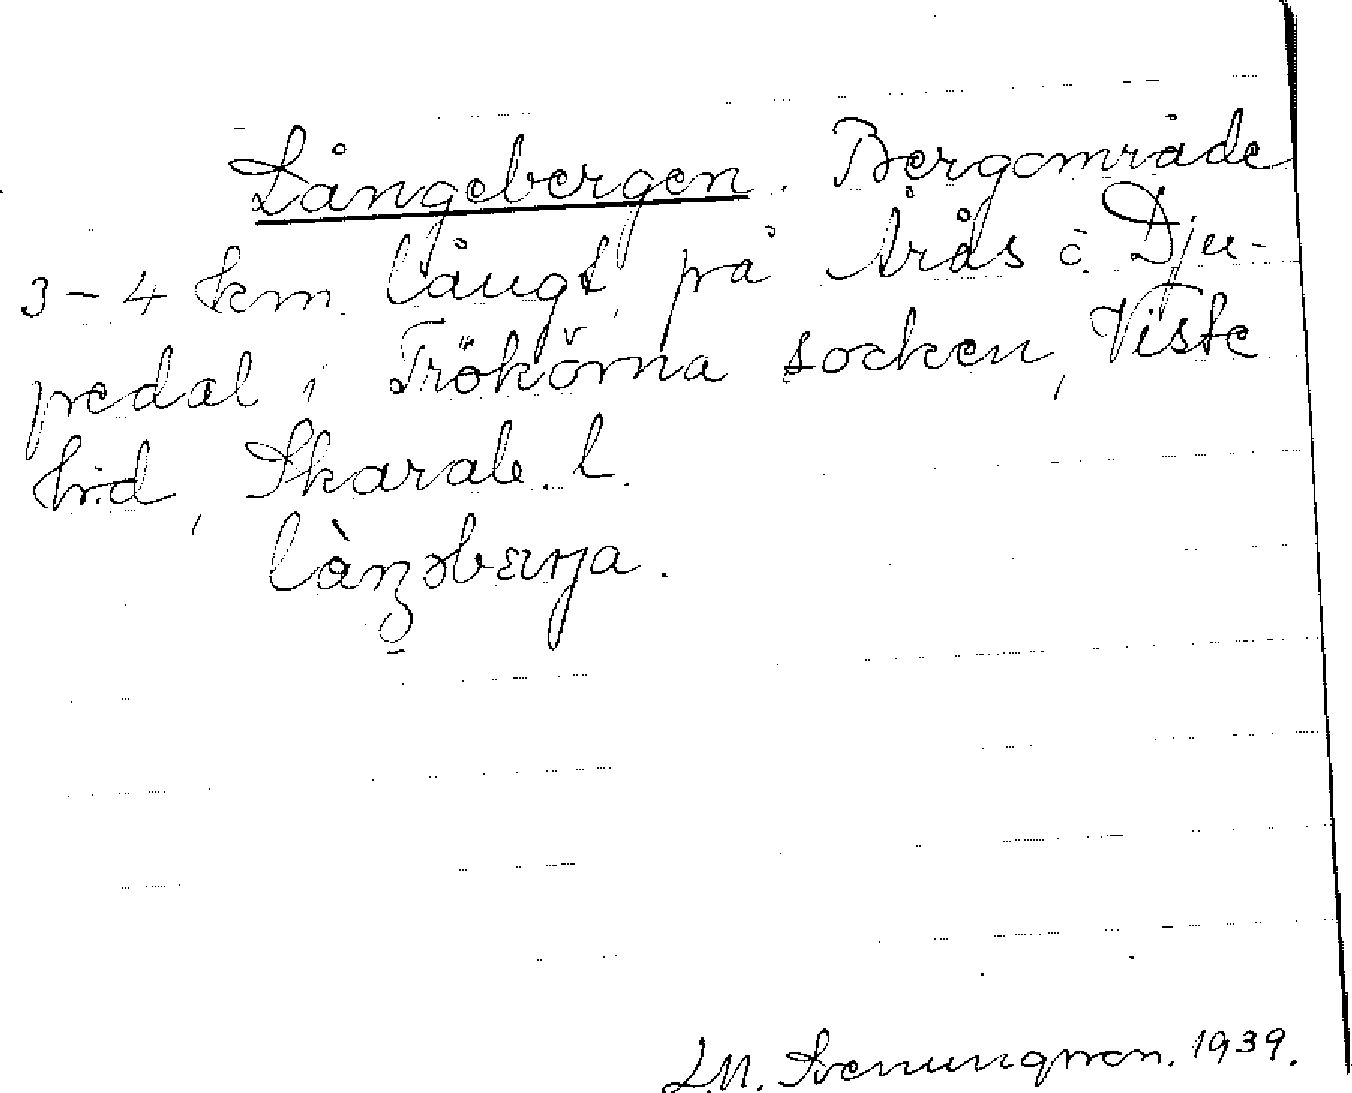 Långebergen. Bergområde
3-4 km. långt, på Ärås o. Dju-
pedal i Trökörna socken, Viste
hrd, Skarab. l.
làŋəbærja.
L.N. Svenungsson. 1939.